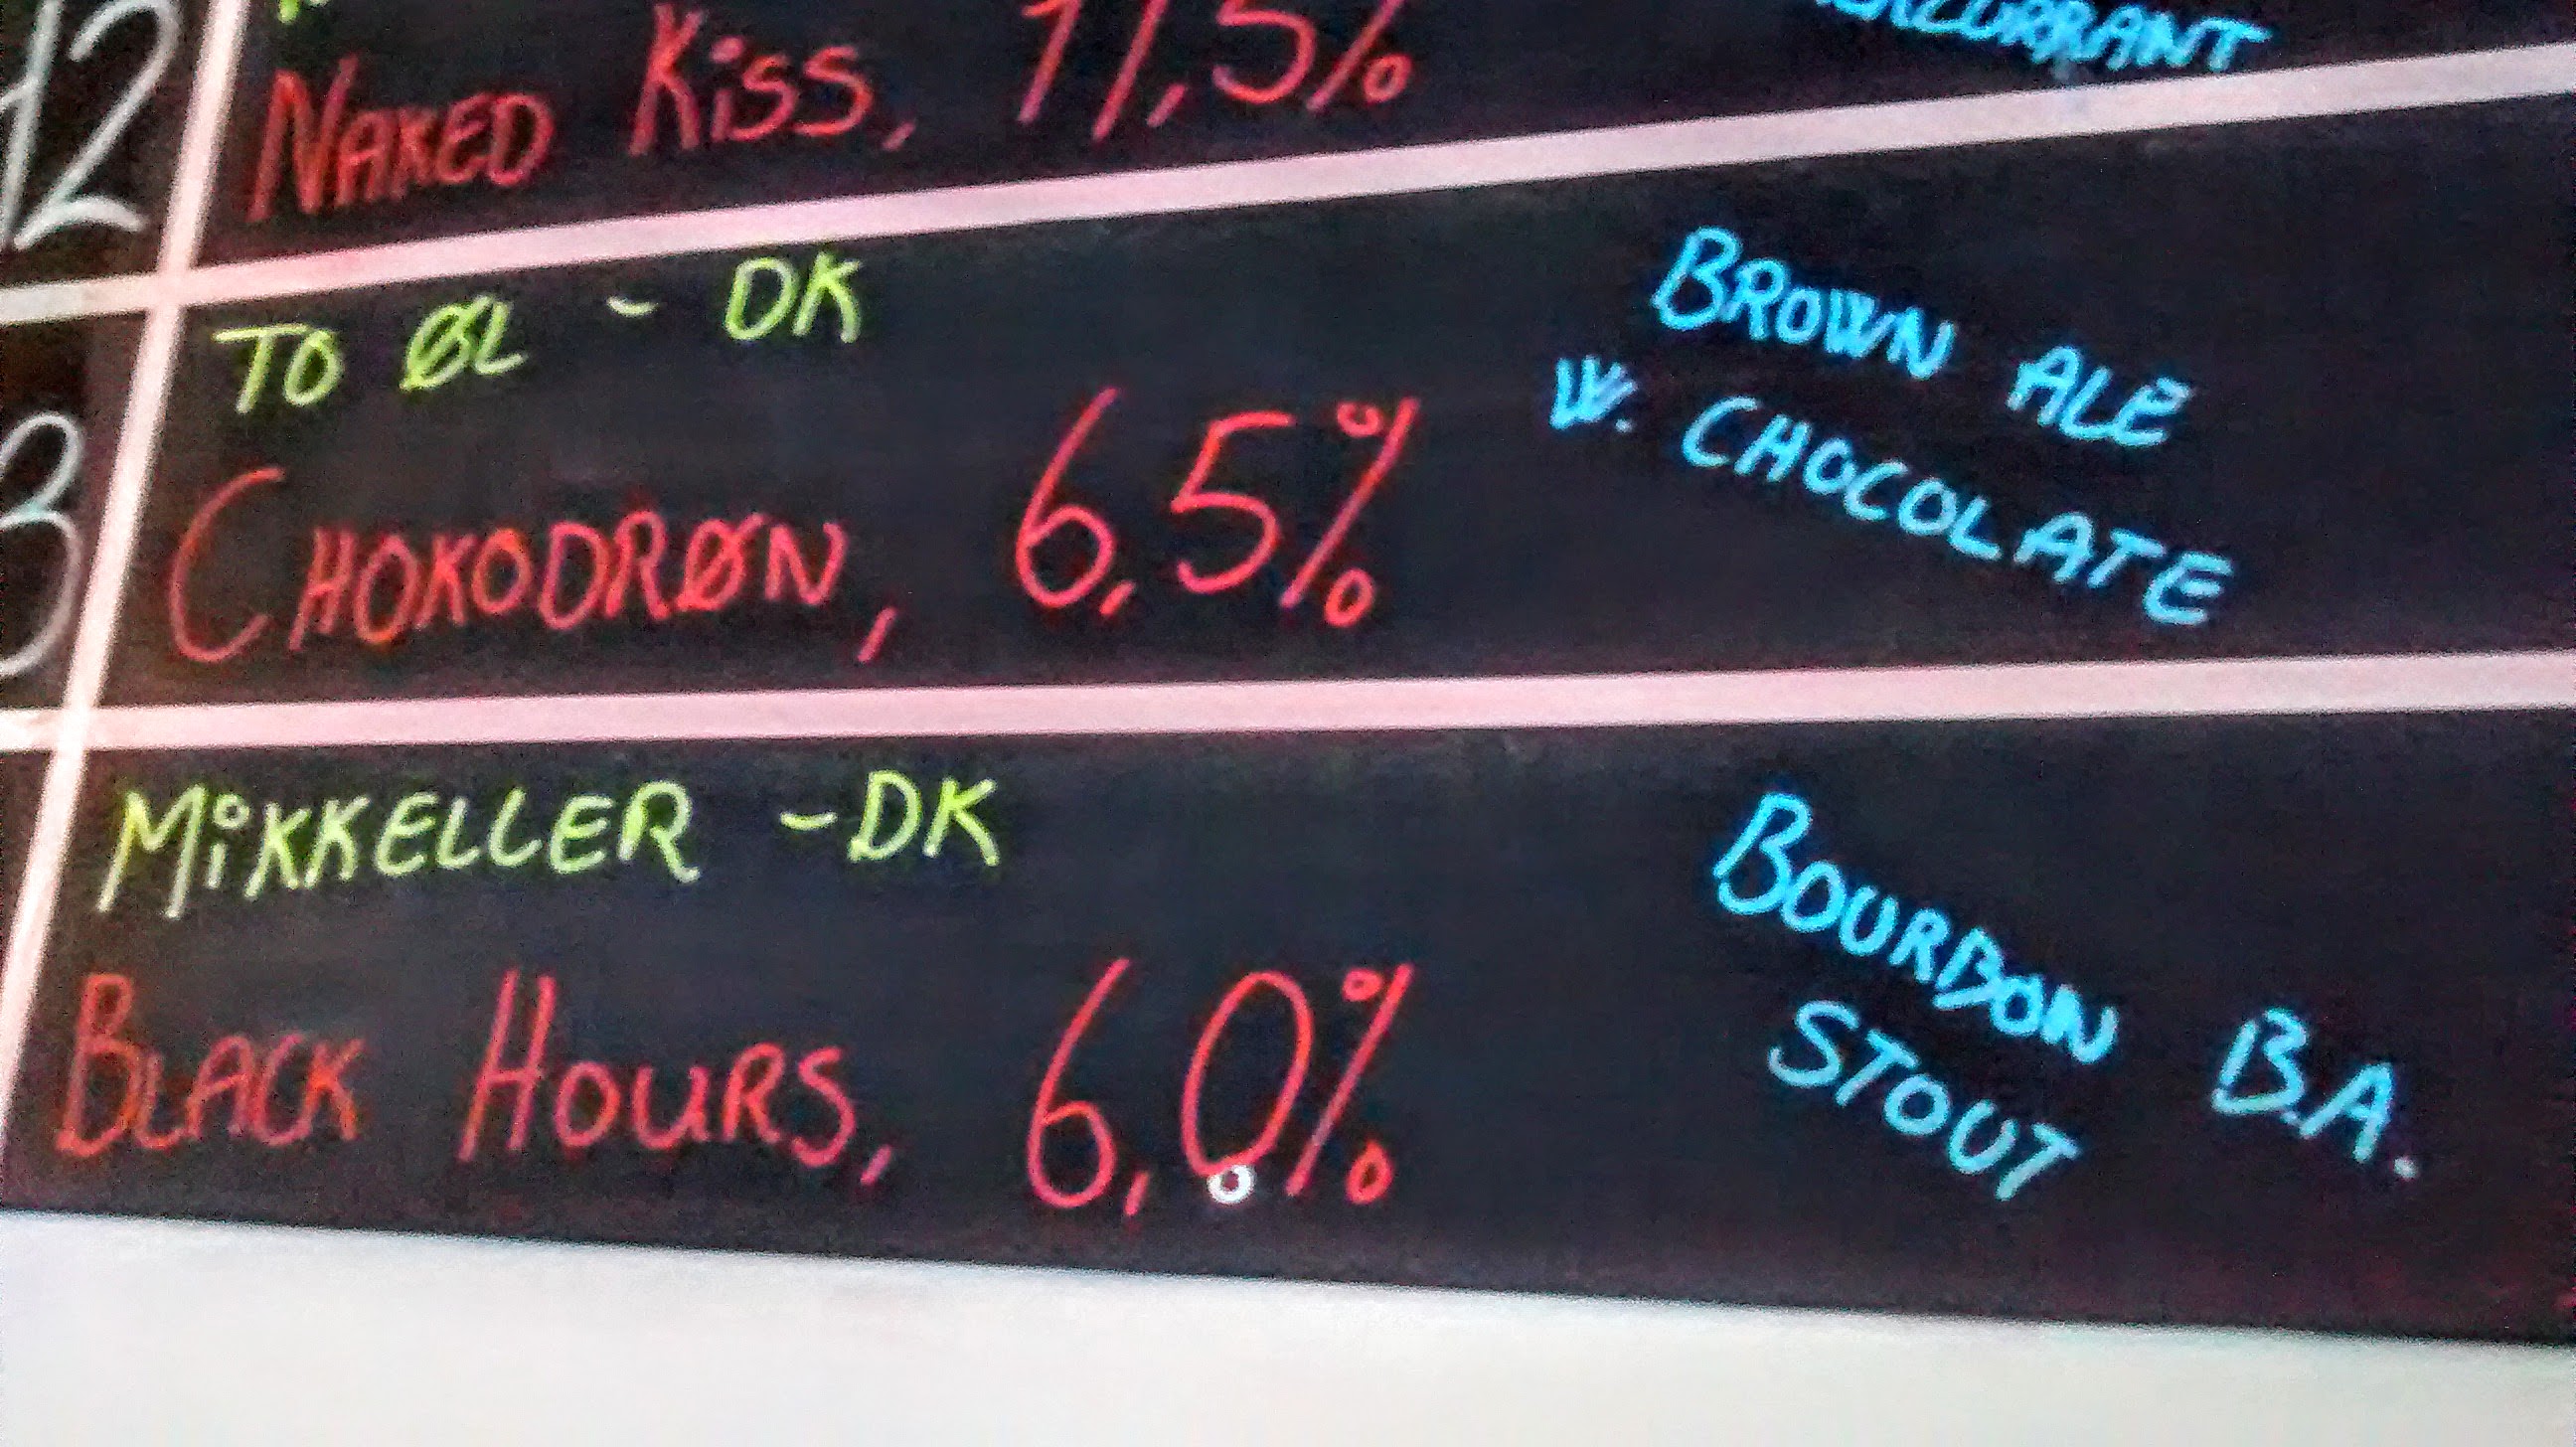 12
NAKED KISS, 11,5%
TO ØL - DK
BROWN ALE
3
CHOKODRØN, 6,5%
W. CHOCOLATE
MIKKELLER - DK
BOURDON B.A.
BLACK HOURS, 6,0%
STOUT